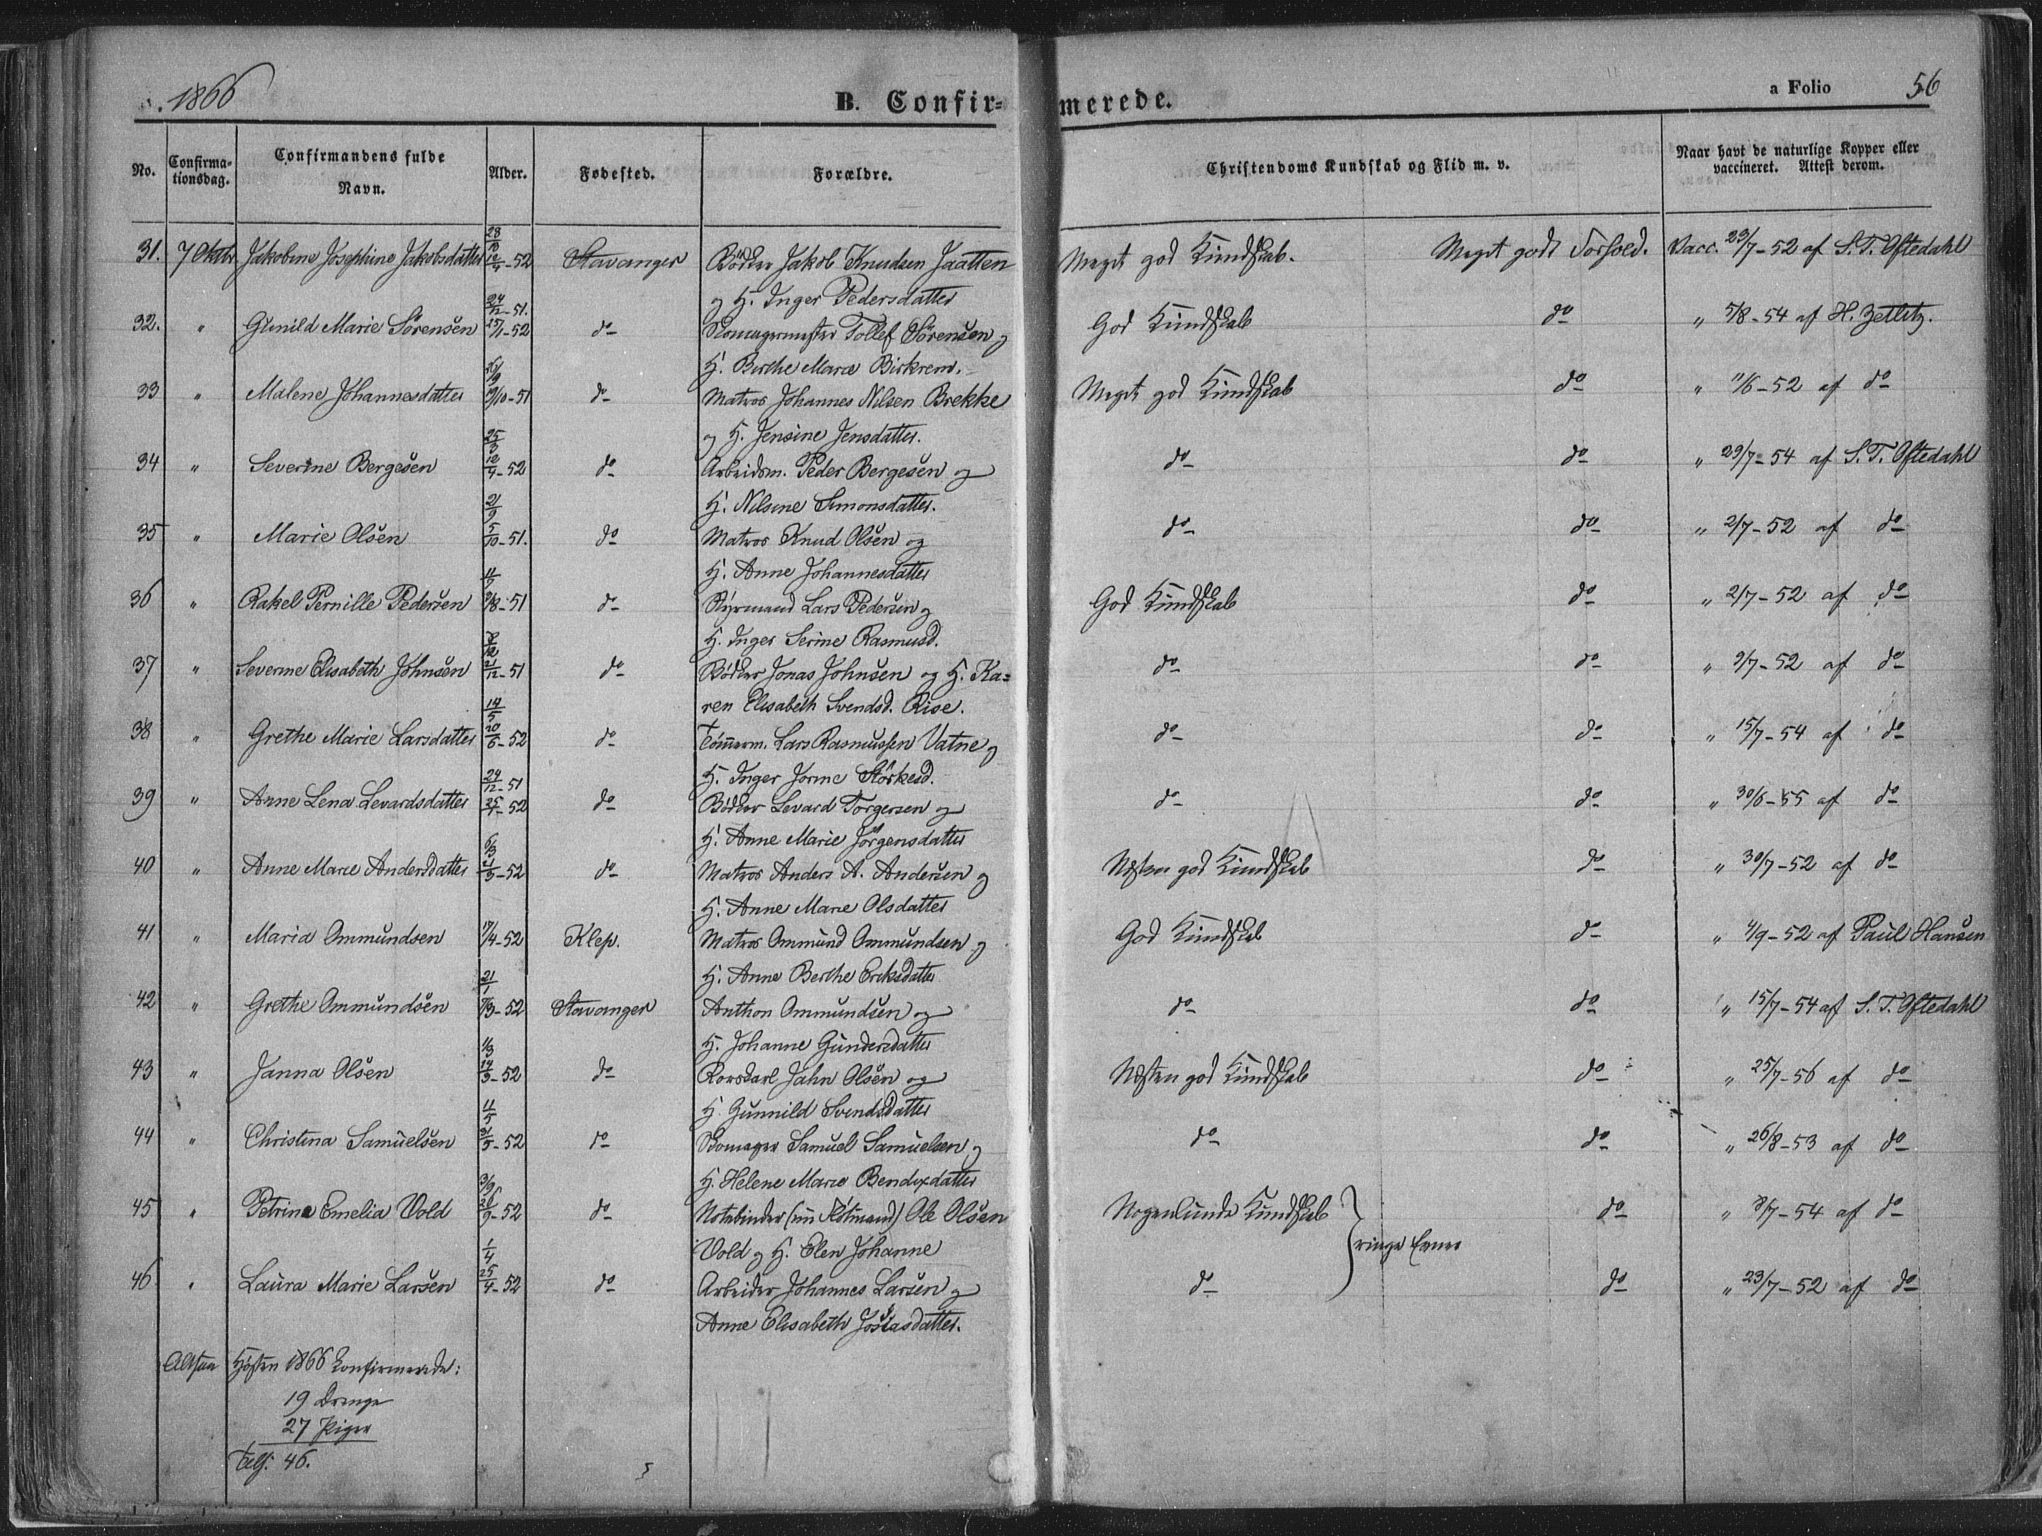 1866 B. Confirmerede. a Folio 56
No. Confirmationsdag. Confirmandens fulde Navn. Alder. Fødested. Forældre. Christendoms Kundskab og Flid m. v. Naar havt de naturlige Kopper eller vaccineret. Attest derom.
31. 7 Oktbr Jakobine Josephine Jakobsdatter 28/12 12/4-52 Stavanger Bødker Jakob Knudsen Jaatten Meget god Kundskab. Meget godt Forhold. Vacc. 23/7-52 af S. T. Oftedahl
og H. Inger Pedersdatter
32. " Gunild Marie Sørensen 24/12-51. 15/1-52 do Skomagermester Tollef Sørensen og God Kundskab do " 5/8-54 af H. Zetlitz.
H. Berthe Marie Birkrem.
33 " Malene Johannesdatter 19/10-51 do Matros Johannes Nilsen Brekke Meget god Kundskab do " 11/6-52 af do
og H. Jensine Jensdatter.
34 " Severine Bergesen 25/3 12/4-52 do Arbeidsm. Peder Bergesen og do do " 29/7-54 af S. T. Oftedahl
H. Nilsine Simonsdatter.
35 " Marie Olsen 2/9 5/10-51. do Matros Knud Olsen og do do " 2/7-52 af do
H. Anne Johannesdatter
36 " Rakel Pernille Pedersen 11/7 3/8-51 do Styrmand Lars Pedersen og God Kundskab do " 2/7-52 af do
H. Inger Serine Rasmusd.
37 " Severine Elisabeth Johnsen 21/12-51 do Bødker Jonas Johnsen og H. Ka= do do " 9/7-52 af do
ren Elisabeth Svendsd. Rise.
38 " Grethe Marie Larsdatter 14/5 20/6-52 do Tømmerm. Lars Rasmussen Vatne og do do " 15/7-54 af do
H. Inger Jorine Størkesd.
39 " Anne Lena Levardsdatter 24/12-51 25/4-52 do Bødker Levard Torgersen og do do " 30/6-55 af do
H. Anne Marie Jörgensdatter
40 " Anne Marie Andersdatter 6/3 21/3-52 do Matros Anders A. Andersen og Næsten god Kundskab do " 30/7-52 af do
H. Anne Marie Olsdatter
41 " Maria Ommundsen 17/4-52 Klep. Matros Ommund Ommundsen og God Kundskab do " 4/9-52 af Paul Hansen
H. Anne Berthe Eriksdatter
42 " Grethe Ommundsen 21/1 7/3-52 Stavanger Anthon Ommundsen og do do " 15/7-54 af S. T. Oftedahl
H. Johanne Gundersdatter
43 " Janna Olsen 1/3 14/3-52 do Rorskarl Jahn Olsen og Næsten god Kundskab do " 25/7-56 af do
H. Gunnild Svendsdatter
44 " Christina Samuelsen 11/5 31/5-52 do Skomager Samuel Samuelsen og do do " 26/8-53 af do
H. Helene Marie Bendixdatter
45 " Petrine Emelia Vold 3/9 26/9-52 do Notebinder (nu Fløtmand) Ole Olsen Nogenlunde Kundskab do " 8/7-54 af do
Vold og H. Elen Johanne ringe Evner
46. " Laura Marie Larsen 1/4 25/4-52 do Arbeider Johannes Larsen og do do " 23/7-52 af do
Anne Elisabeth Josiasdatter.
Altsaa Høsten 1866 Konfirmerede:
19 Drenge
27 Piger
Tils. 46.